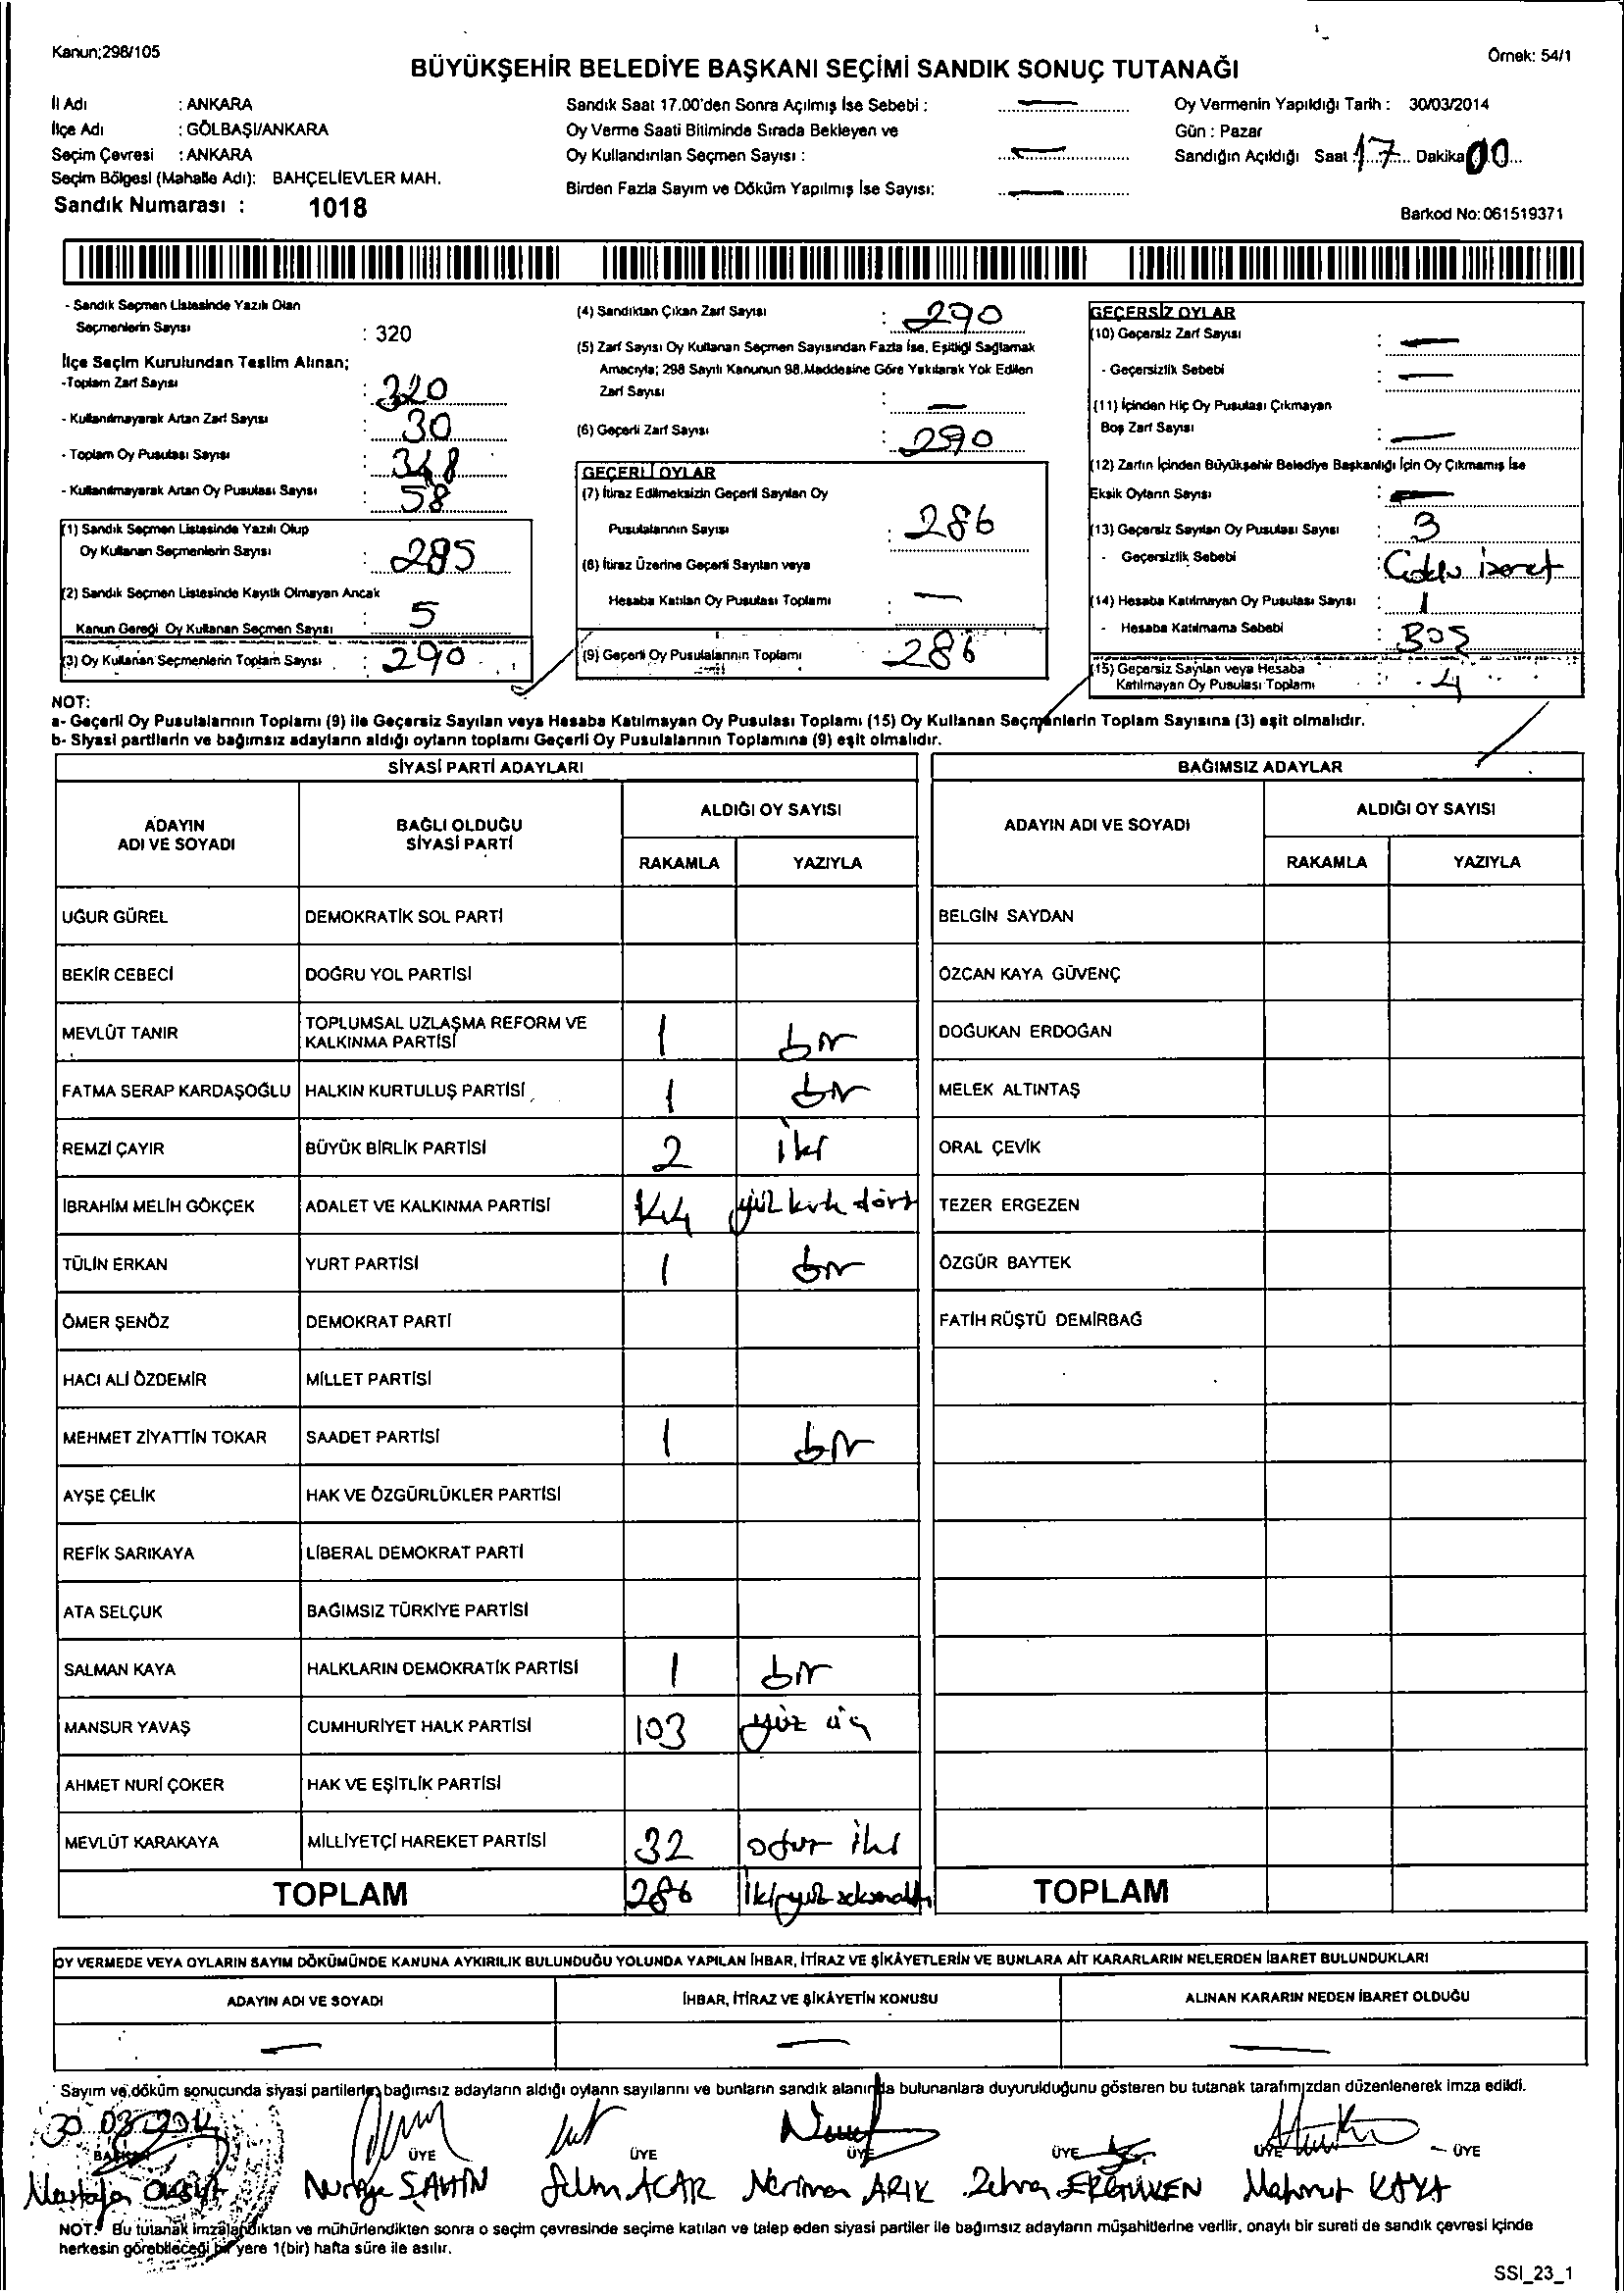 Kanun;298/105
Örnek: 54/1
BÜYÜKŞEHİR BELEDİYE BAŞKANI SEÇİMİ SANDIK SONUÇ TUTANAĞI
İl Adı : ANKARA
İlçe Adı : GÖLBAŞI/ANKARA
Seçim Çevresi : ANKARA
Seçim Bölgesi (Mahalle Adı): BAHÇELİEVLER MAH.
Sandık Numarası : 1018
Sandık Saat 17.00'den Sonra Açılmış İse Sebebi : —
Oy Verme Saati Bitiminde Sırada Bekleyen ve
Oy Kullandırılan Seçmen Sayısı : —
Birden Fazla Sayım ve Döküm Yapılmış İse Sayısı: —
Oy Vermenin Yapıldığı Tarih : 30/03/2014
Gün : Pazar
Sandığın Açıldığı Saat : 17 Dakika 00
Barkod No: 061519371
- Sandık Seçmen Listesinde Yazılı Olan
Seçmenlerin Sayısı : 320
İlçe Seçim Kurulundan Teslim Alınan;
-Toplam Zarf Sayısı : 320
- Kullanılmayarak Artan Zarf Sayısı : 30
- Toplam Oy Pusulası Sayısı : 348
- Kullanılmayarak Artan Oy Pusulası Sayısı : 58
(1) Sandık Seçmen Listesinde Yazılı Olup
Oy Kullanan Seçmenlerin Sayısı : 285
(2) Sandık Seçmen Listesinde Kayıtlı Olmayan Ancak
Kanun Gereği Oy Kullanan Seçmen Sayısı : 5
(3) Oy Kullanan Seçmenlerin Toplam Sayısı : 290
(4) Sandıktan Çıkan Zarf Sayısı : 290
(5) Zarf Sayısı Oy Kullanan Seçmen Sayısından Fazla İse, Eşitliği Sağlamak
Amacıyla; 298 Sayılı Kanunun 98.Maddesine Göre Yakılarak Yok Edilen
Zarf Sayısı : —
(6) Geçerli Zarf Sayısı : 290
GEÇERLİ OYLAR
(7) İtiraz Edilmeksizin Geçerli Sayılan Oy
Pusulalarının Sayısı : 286
(8) İtiraz Üzerine Geçerli Sayılan veya
Hesaba Katılan Oy Pusulası Toplamı : —
(9) Geçerli Oy Pusulalarının Toplamı : 286
GEÇERSİZ OYLAR
(10) Geçersiz Zarf Sayısı : —
- Geçersizlik Sebebi : —
(11) İçinden Hiç Oy Pusulası Çıkmayan
Boş Zarf Sayısı : —
(12) Zarfın İçinden Büyükşehir Belediye Başkanlığı İçin Oy Çıkmamış İse
Eksik Oyların Sayısı : —
(13) Geçersiz Sayılan Oy Pusulası Sayısı : 3
- Geçersizlik Sebebi :
(14) Hesaba Katılmayan Oy Pusulası Sayısı : 1
- Hesaba Katılmama Sebebi : BOŞ
(15) Geçersiz Sayılan veya Hesaba
Katılmayan Oy Pusulası Toplamı : 4
NOT:
a- Geçerli Oy Pusulalarının Toplamı (9) ile Geçersiz Sayılan veya Hesaba Katılmayan Oy Pusulası Toplamı (15) Oy Kullanan Seçmenlerin Toplam Sayısına (3) eşit olmalıdır.
b- Siyasi partilerin ve bağımsız adayların aldığı oyların toplamı Geçerli Oy Pusulalarının Toplamına (9) eşit olmalıdır.
SİYASİ PARTİ ADAYLARI
ADAYIN ADI VE SOYADI
BAĞLI OLDUĞU SİYASİ PARTİ
ALDIĞI OY SAYISI
RAKAMLA YAZIYLA
UĞUR GÜREL DEMOKRATİK SOL PARTİ
BEKİR CEBECİ DOĞRU YOL PARTİSİ
MEVLÜT TANIR TOPLUMSAL UZLAŞMA REFORM VE KALKINMA PARTİSİ 1 bir
FATMA SERAP KARDAŞOĞLU HALKIN KURTULUŞ PARTİSİ 1 bir
REMZİ ÇAYIR BÜYÜK BİRLİK PARTİSİ 2 iki
İBRAHİM MELİH GÖKÇEK ADALET VE KALKINMA PARTİSİ 144 yüz kırk dört
TÜLİN ERKAN YURT PARTİSİ 1 bir
ÖMER ŞENÖZ DEMOKRAT PARTİ
HACI ALİ ÖZDEMİR MİLLET PARTİSİ
MEHMET ZİYATTİN TOKAR SAADET PARTİSİ 1 bir
AYŞE ÇELİK HAK VE ÖZGÜRLÜKLER PARTİSİ
REFİK SARIKAYA LİBERAL DEMOKRAT PARTİ
ATA SELÇUK BAĞIMSIZ TÜRKİYE PARTİSİ
SALMAN KAYA HALKLARIN DEMOKRATİK PARTİSİ 1 bir
MANSUR YAVAŞ CUMHURİYET HALK PARTİSİ 103 yüz üç
AHMET NURİ ÇOKER HAK VE EŞİTLİK PARTİSİ
MEVLÜT KARAKAYA MİLLİYETÇİ HAREKET PARTİSİ 32 otuz iki
TOPLAM 286 ikiyüz seksenaltı
BAĞIMSIZ ADAYLAR
ADAYIN ADI VE SOYADI
ALDIĞI OY SAYISI
RAKAMLA YAZIYLA
BELGİN SAYDAN
ÖZCAN KAYA GÜVENÇ
DOĞUKAN ERDOĞAN
MELEK ALTINTAŞ
ORAL ÇEVİK
TEZER ERGEZEN
ÖZGÜR BAYTEK
FATİH RÜŞTÜ DEMİRBAĞ
TOPLAM
OY VERMEDE VEYA OYLARIN SAYIM DÖKÜMÜNDE KANUNA AYKIRILIK BULUNDUĞU YOLUNDA YAPILAN İHBAR, İTİRAZ VE ŞİKÂYETLERİN VE BUNLARA AİT KARARLARIN NELERDEN İBARET BULUNDUKLARI
ADAYIN ADI VE SOYADI İHBAR, İTİRAZ VE ŞİKÂYETİN KONUSU ALINAN KARARIN NEDEN İBARET OLDUĞU
— — —
Sayım ve döküm sonucunda siyasi partilerle, bağımsız adayların aldığı oyların sayılarını ve bunların sandık alanında bulunanlara duyurulduğunu gösteren bu tutanak tarafımızdan düzenlenerek imza edildi.
30.03.2014
BAŞKAN ÜYE ÜYE ÜYE ÜYE ÜYE ÜYE
Mustafa Nuriye ŞAHİN Selim ACAR Neriman ARIK Zehra Mahmut KAYA
NOT: Bu tutanak imzalandıktan ve mühürlendikten sonra o seçim çevresinde seçime katılan ve talep eden siyasi partiler ile bağımsız adayların müşahitlerine verilir, onaylı bir sureti de sandık çevresi içinde
herkesin görebileceği bir yere 1(bir) hafta süre ile asılır.
SSI_23_1